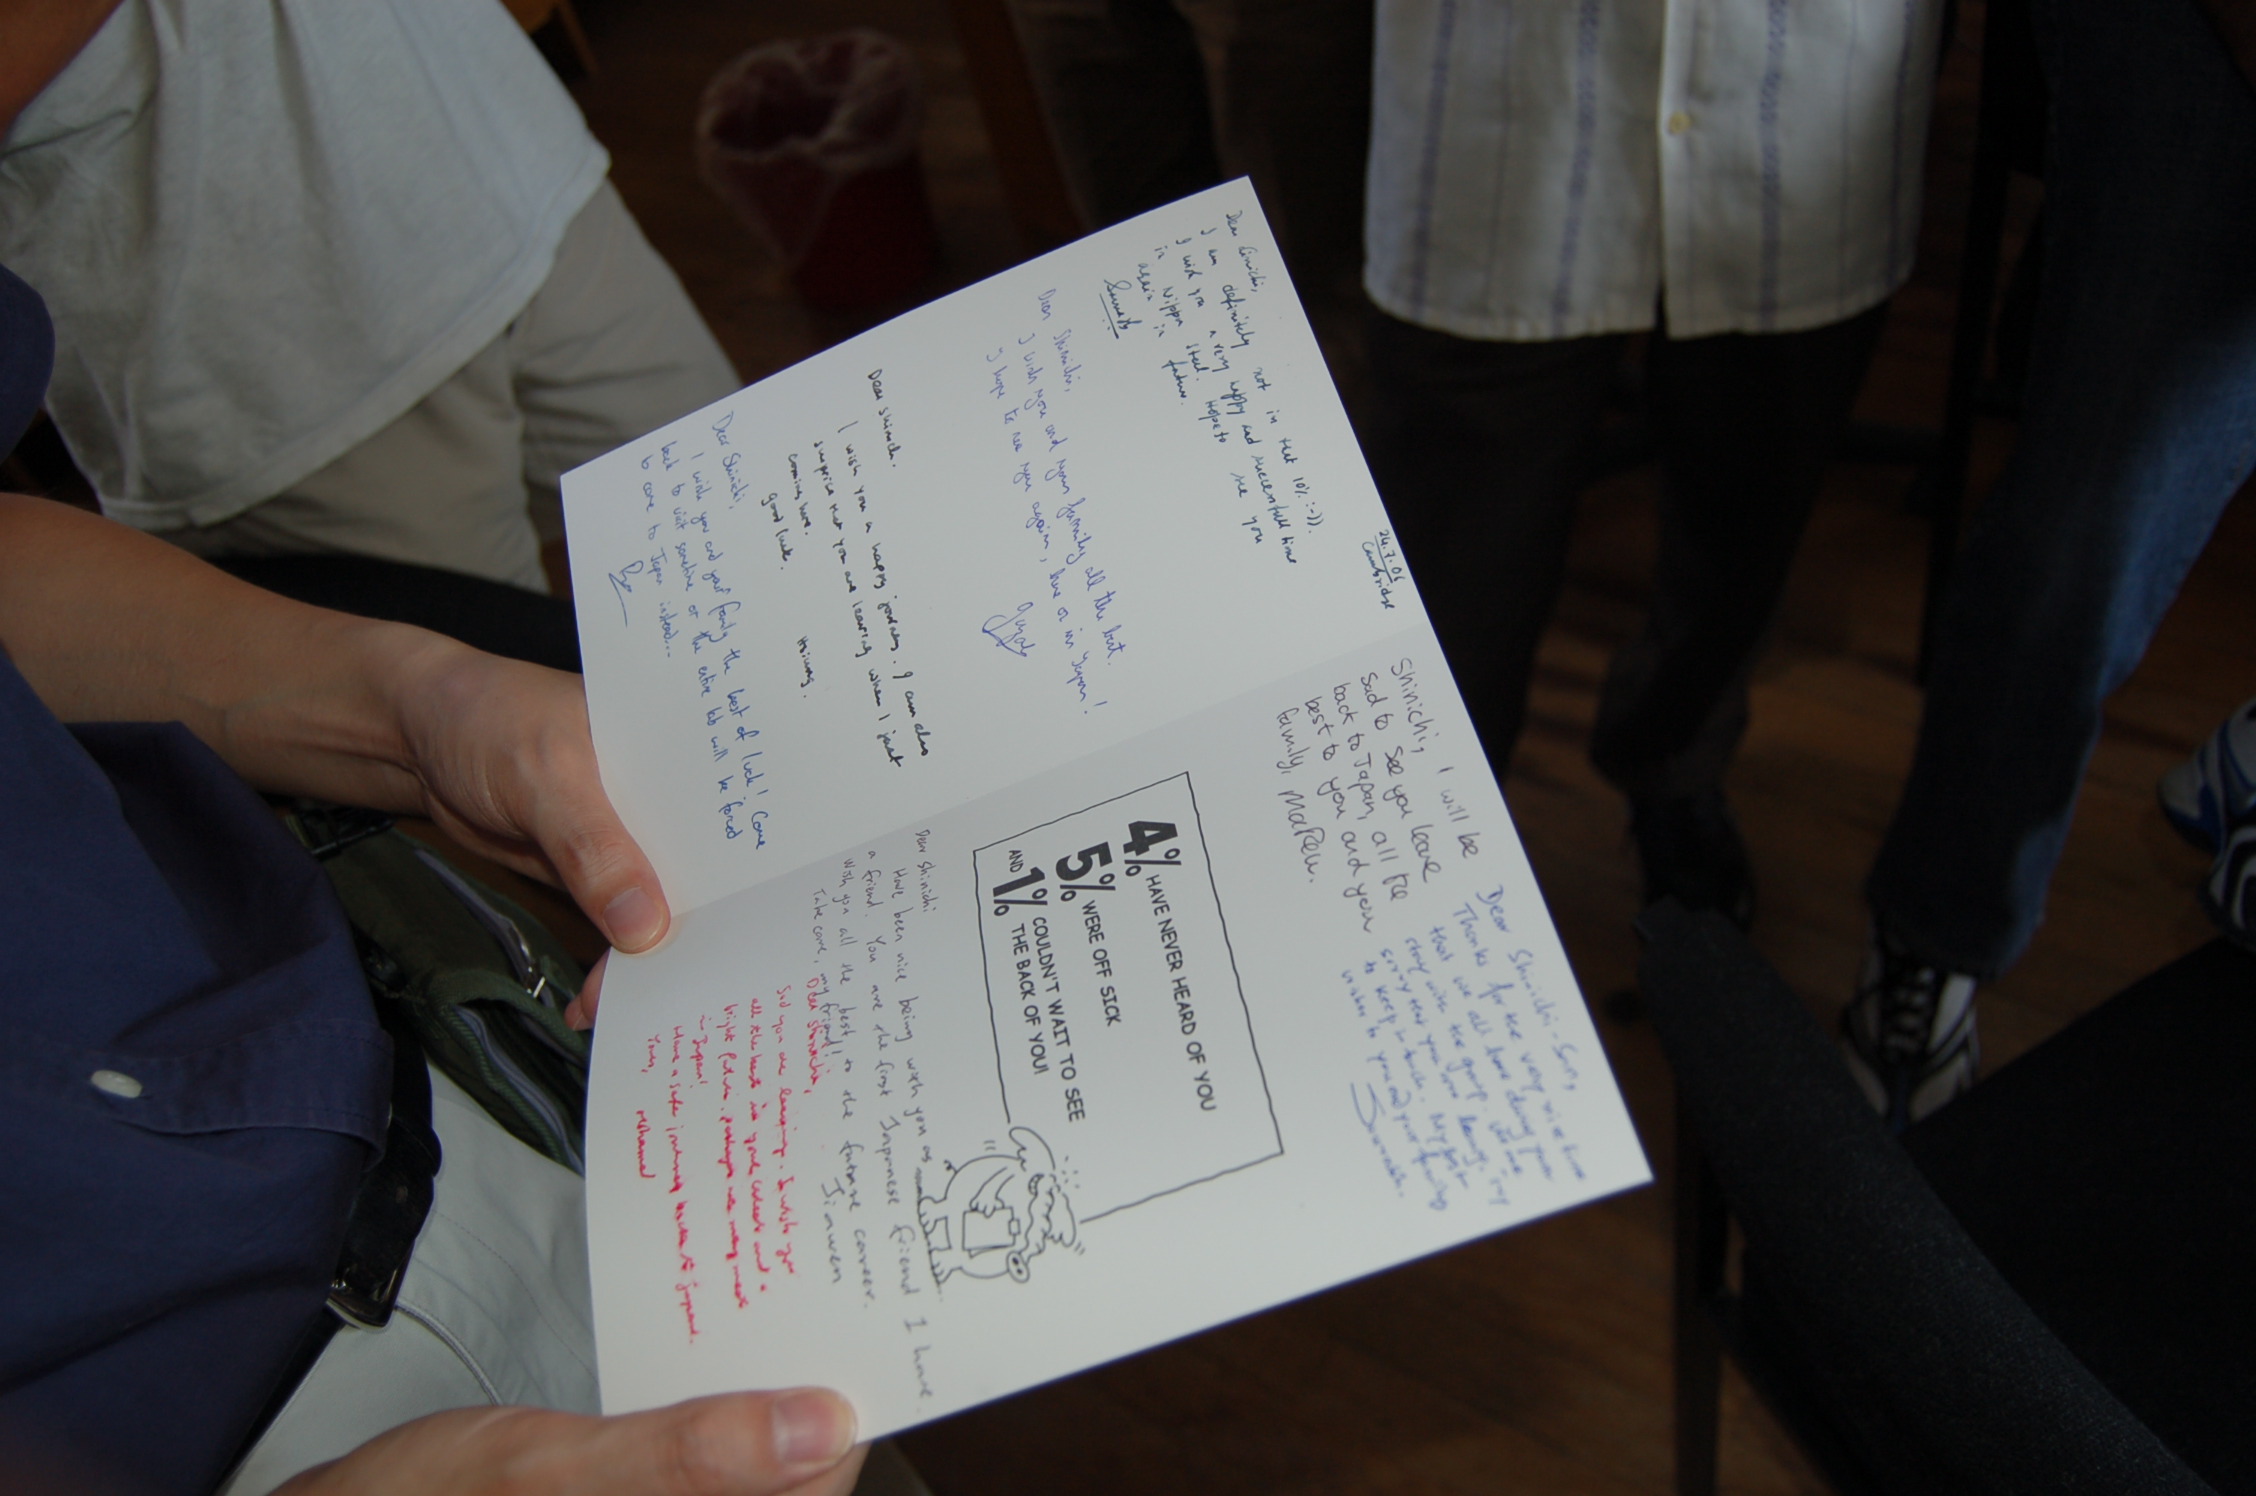 24.7.06
Cambridge
I am definitely not in that 10% :-)).
I wish you a very happy and successfull time
in Nippon Steel. Hope to see you
again in future.
Dear Shinichi,
I wish you and your family all the best.
I hope to see you again, here or in Japan!
Dear Shinichi.
I wish you a happy journey. I am also
surprise that you are leaving when I just
coming here.
Good luck.
Dear Shinichi,
I wish you and your family the best of luck! Come
back to visit sometime or the entire lab will be forced
to come to Japan instead...
Shinichi, I will be
sad to see you leave
back to Japan, all the
best to you and your
family, Maren.
Dear Shinichi-San,
Thanks for the very nice time
that we all have during your
stay with the group.
sorry that you are leaving.
to keep in touch. My best
wishes to you and your family
4% HAVE NEVER HEARD OF YOU
5% WERE OFF SICK
AND 1% COULDN'T WAIT TO SEE
THE BACK OF YOU!
Dear Shinichi
Have been nice being with you as
a friend. You are the first Japanese friend I have.
Wish you all the best to the future career.
Take care, my friend! Jinwen
Dear Shinichi,
Sad you are leaving. I wish you
all the best in your career and a
bright future. perhaps we may meet
in Japan!
Have a safe journey back to Japan.
Yours,
Mohamed